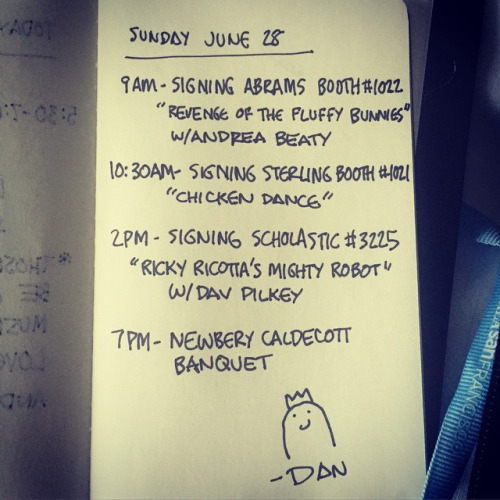 SUNDAY JUNE 28
9AM - SIGNING ABRAMS BOOTH #1022
"REVENGE OF THE FLUFFY BUNNIES"
W/ANDREA BEATY
10:30AM - SIGNING STERLING BOOTH #1021
"CHICKEN DANCE"
2PM - SIGNING SCHOLASTIC #3225
"RICKY RICOTTA'S MIGHTY ROBOT"
W/ DAV PILKEY
7PM - NEWBERY CALDECOTT
BANQUET
- DAN